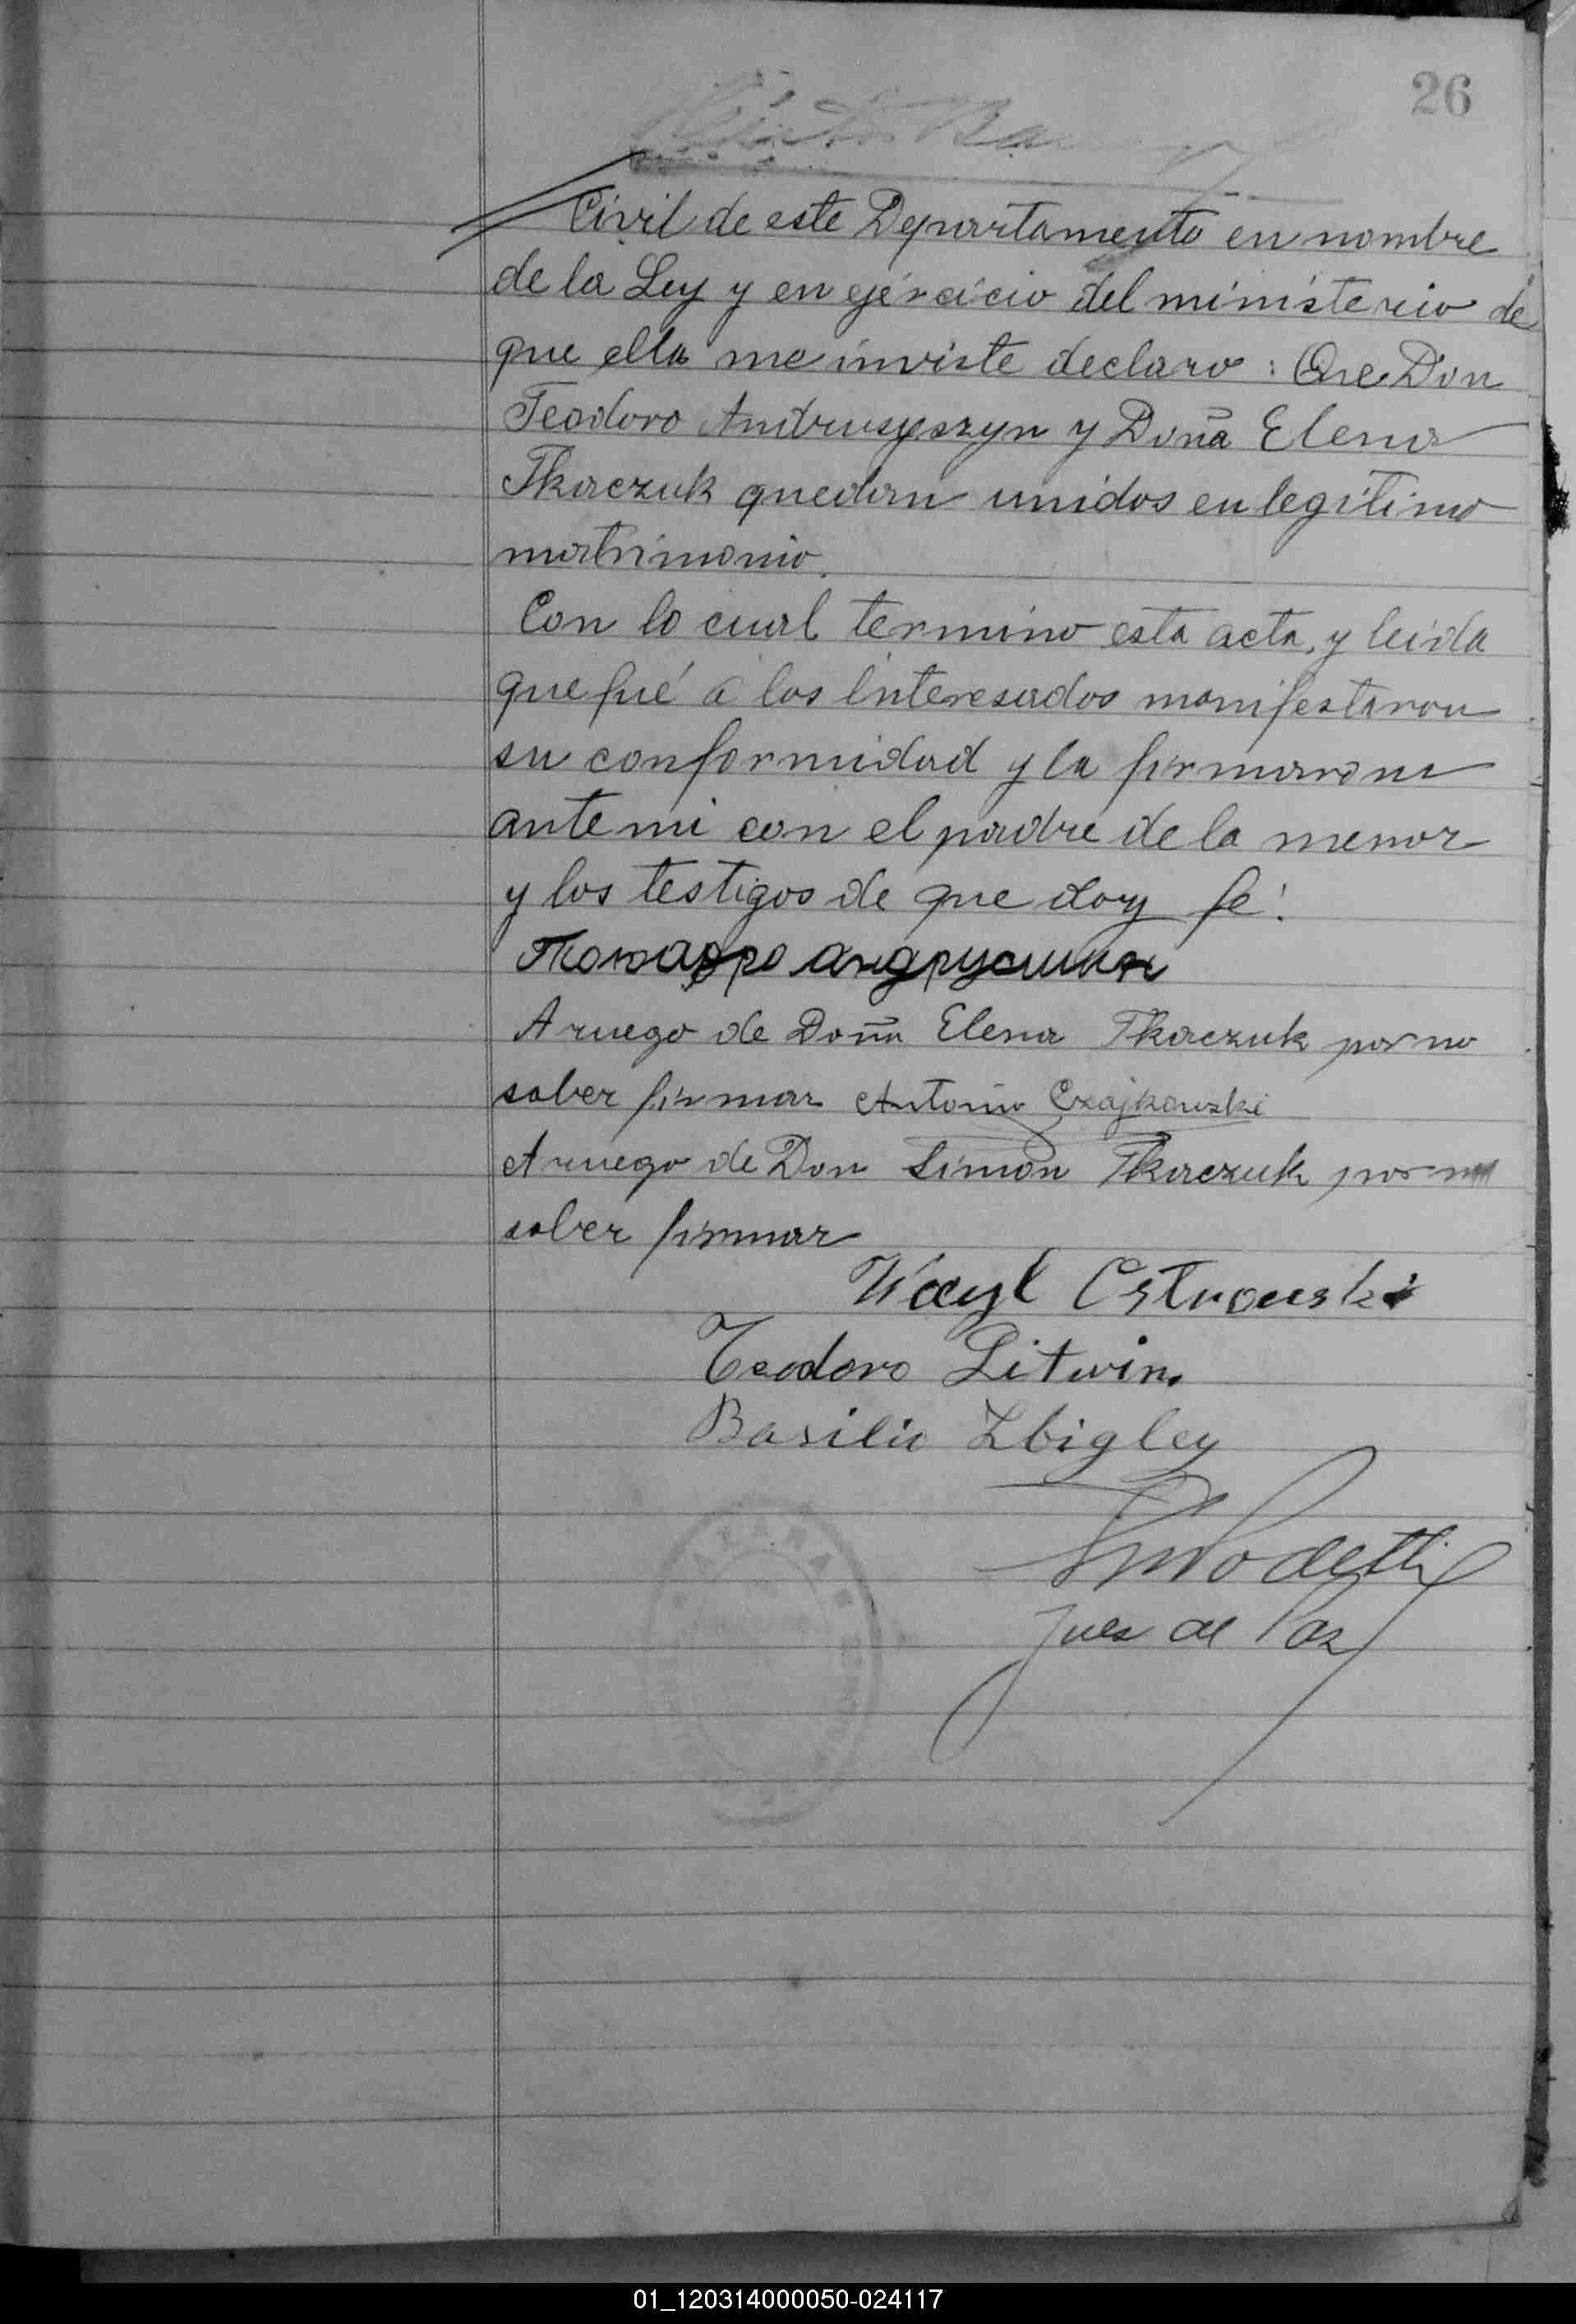 26
Civil de este Departamento en nombre
de la Ley y en ejercicio del ministerio de
que ella me inviste declaro: Que Don
Teodoro Andrusyszyn y Doña Elena
Tkaczuk quedan unidos en legítimo
matrimonio.
Con lo cual termino esta acta, y leida
que fué á los interesados manifestaron
su conformidad y la firmaron
ante mi con el padre de la menor
y los testigos de que doy fé.
андрусишин
A ruego de Doña Elena Tkaczuk por no
saber firmar Antonio Czajkowski
A ruego de Don Simón Tkaczuk por no
saber firmar
Ostrouski
Teodoro Litwin.
Basilio Zbigley
Juez de Paz
01_120314000050-024117